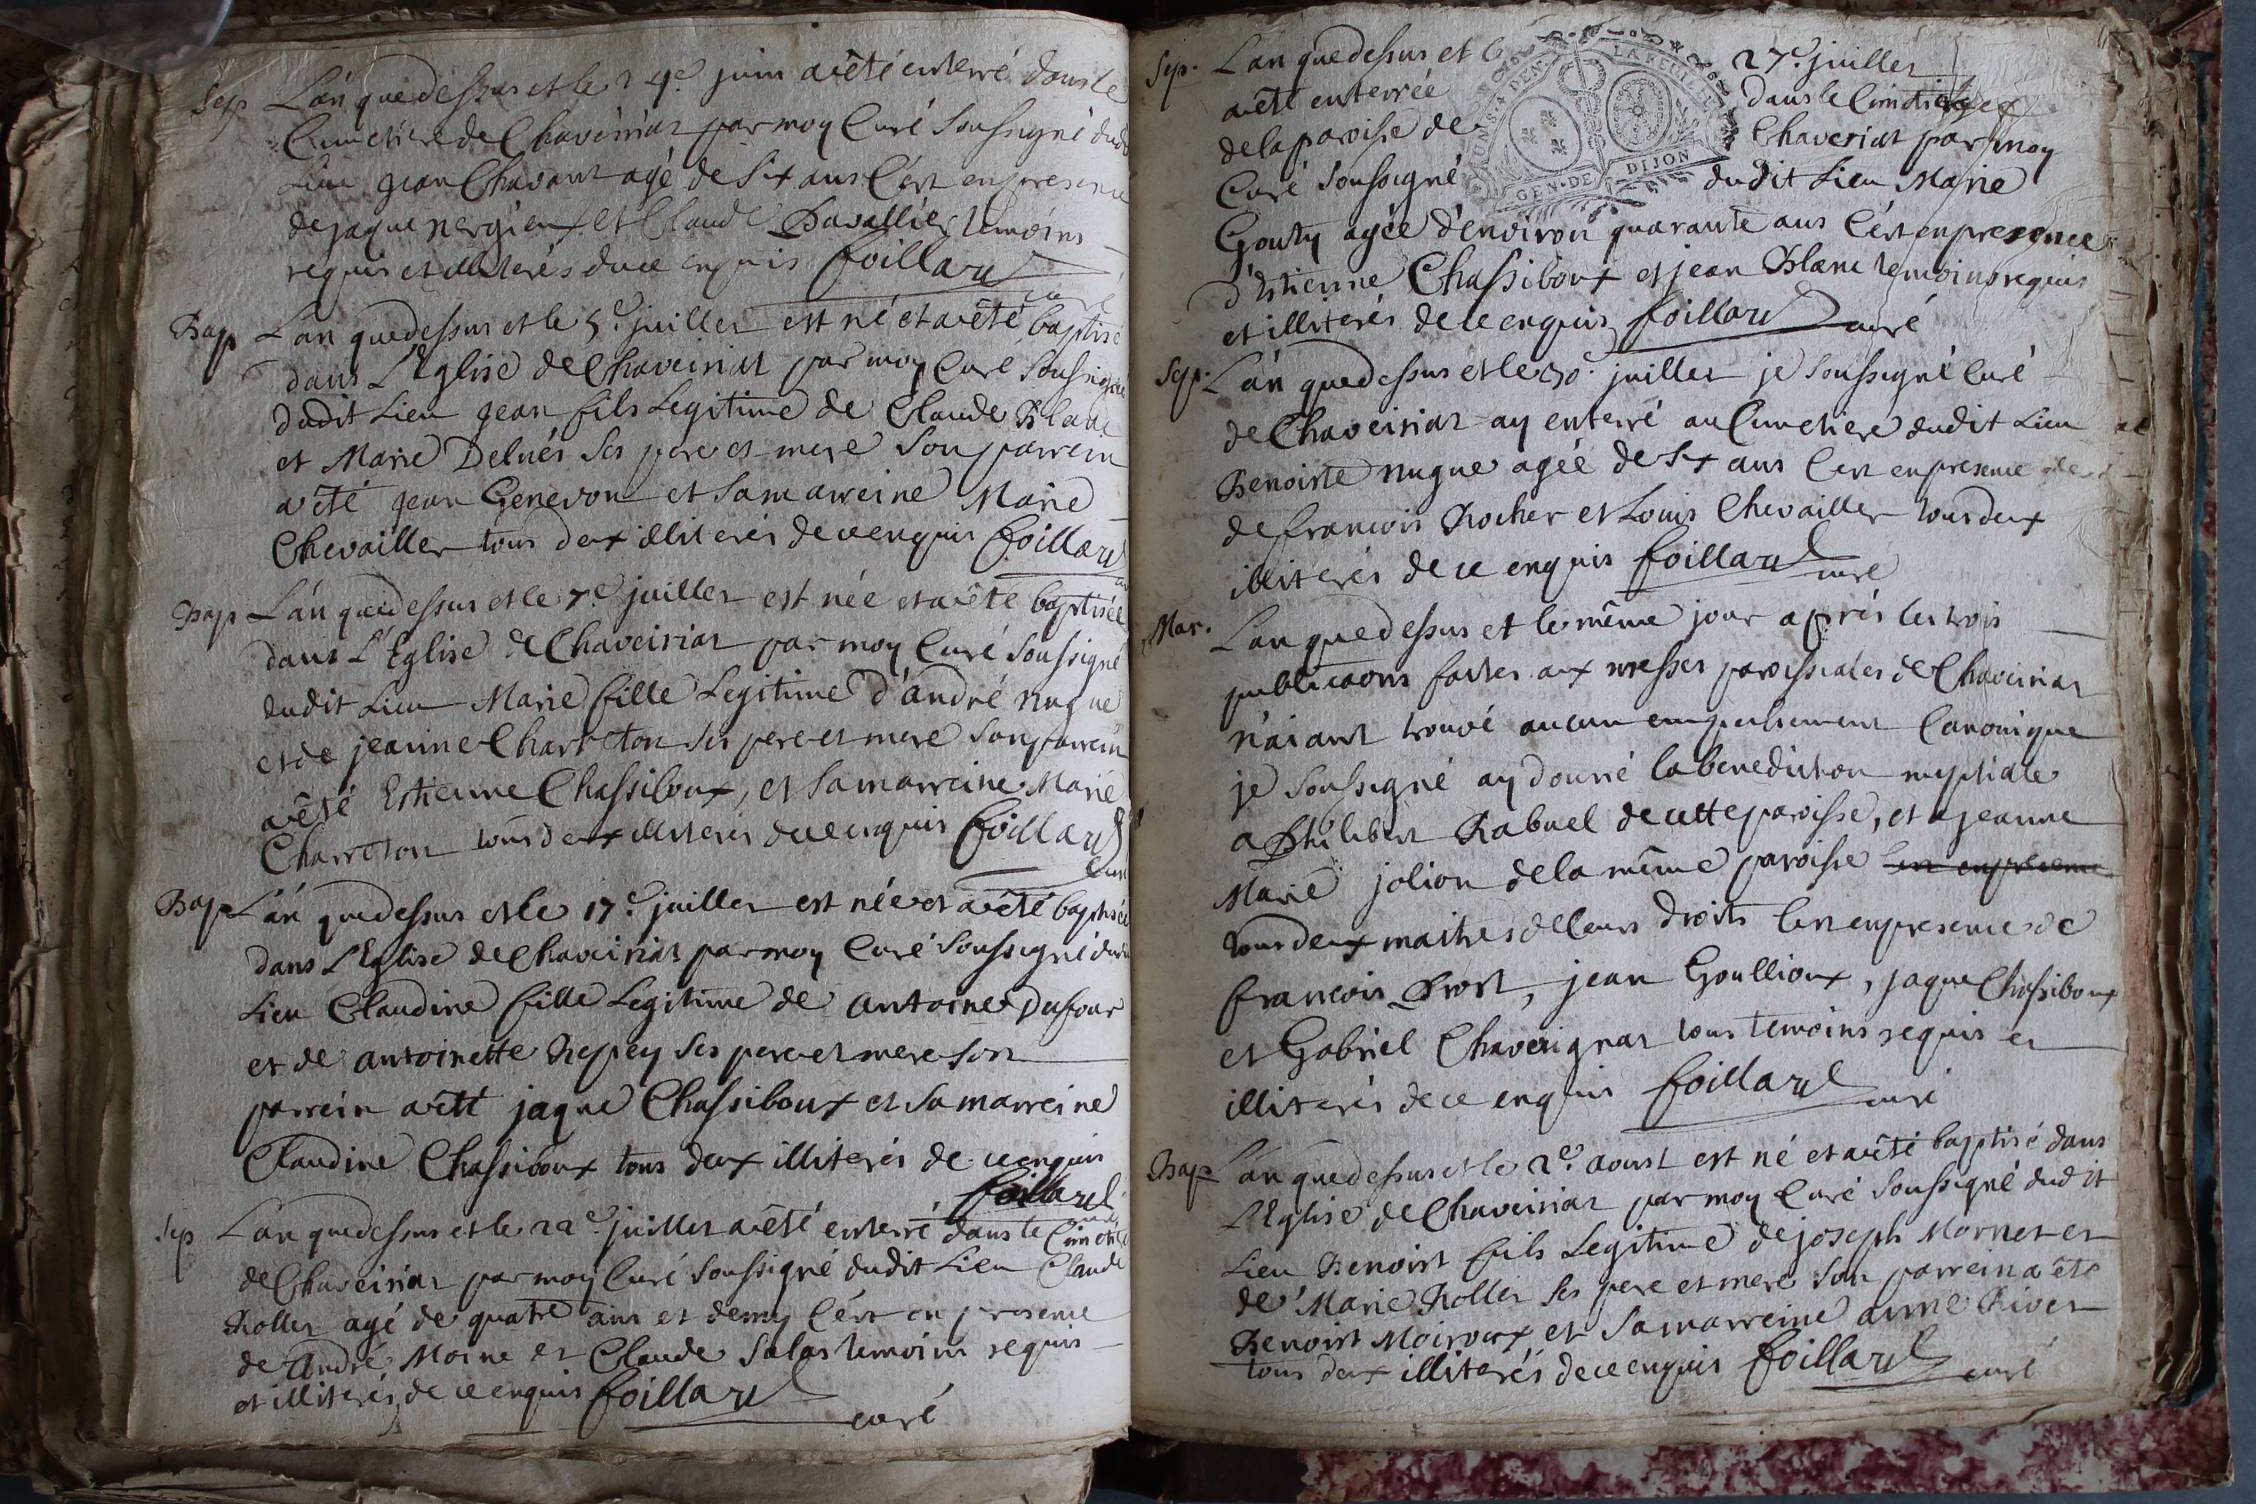 Sep L'an que dessus et le 24e juin a êté enterré dans le
Cimetiere de Chaveiriat par moy Curé soussigné dudit
Lieu jean Chavant agé de six ans C'est en presence
de jaque nergieux et Claude Bavallier temoins
requis et illiterés de ce enquis foillard
curé
Bap L'an que dessus et le 5e juillet est né et a êté baptisé
dans L'Eglise de Chaveiriat par moy Curé soussigné
dudit Lieu jean fils Legitime de Claude Blanc
et Marie Delués ses pere et mere son parrein
a êté jean Genevon et sa marreine Marie
Chevailler tous deux illiterés de ce enquis foillard
Bap L'an que dessus et le 7e juillet est née et a êté baptisée
dans L'Eglise de Chaveiriat par moy Curé soussigné
dudit Lieu Marie fille Legitime d'andré nugue
et de jeanne Charreton ses pere et mere son parrein
a êté Estienne Chassiboux, et sa marreine Marie
Charreton tous deux illiterés de ce enquis foillard
Curé
Bap L'an que dessus et le 17e juillet est née et a êté baptisée
dans L'Eglise de Chaveiriat par moy Curé soussigné dudit
Lieu Claudine fille Legitime de antoine Dufour
et de antoinette Repey ses pere et mere son
parrein a êté jaque Chassiboux et sa marreine
Claudine Chassiboux tous deux illiterés de ce enquis
foillard
Sep L'an que dessus et le 22e juillet a êté enterré dans le Cimetiere
de Chaveiriat par moy Curé soussigné dudit Lieu Claude
Rollet agé de quatre ans et demy C'est en presence
de André Moine et Claude Salas temoins requis
et illiterés de ce enquis foillard
curé
Sep. L'an que dessus et le 27e juillet
a êté enterrée dans le Cimetiere
de la paroisse de Chaveriat par moy
Curé soussigné dudit Lieu Marie
Gouty agée d'environ quarante ans C'est en presence
d'Estienne Chassiboux et jean Blanc temoins requis
et illiterés de ce enquis foillard curé
LA FEUILLE
GEN. DE DIJON
Sep. L'an que dessus et le 30e juillet je soussigné Curé
de Chaveiriat ay enterré au Cimetiere dudit Lieu
Benoiste nugue agée de six ans C'est en presence
de francois Rocher et Louis Chevailler tous deux
illiterés de ce enquis foillard curé
Mar. L'an que dessus et le même jour aprés les trois
publications faites aux messes paroissiales de Chaveiriat
n'aiant trouvé aucun empechement Canonique
je soussigné ay donné la benediction nuptiale
a Philibert Rabuel de cette paroisse, et a jeanne
Marie jolion de la même paroisse C'est en presence
tous deux maitres de leurs droits C'est en presence de
francois Prost, jean Goullioux, jaque Chassiboux
et Gabriel Chaverignat tous temoins requis et
illiterés de ce enquis foillard curé
Bap L'an que dessus et le 2e aoust est né et a êté baptisé dans
L'Eglise de Chaveiriat par moy Curé soussigné dudit
Lieu Benoist fils Legitime de joseph Mornet et
de Marie Rollet ses pere et mere son parrein a êté
Benoist Moiroux et sa marreine anne River
tous deux illiterés de ce enquis foillard curé